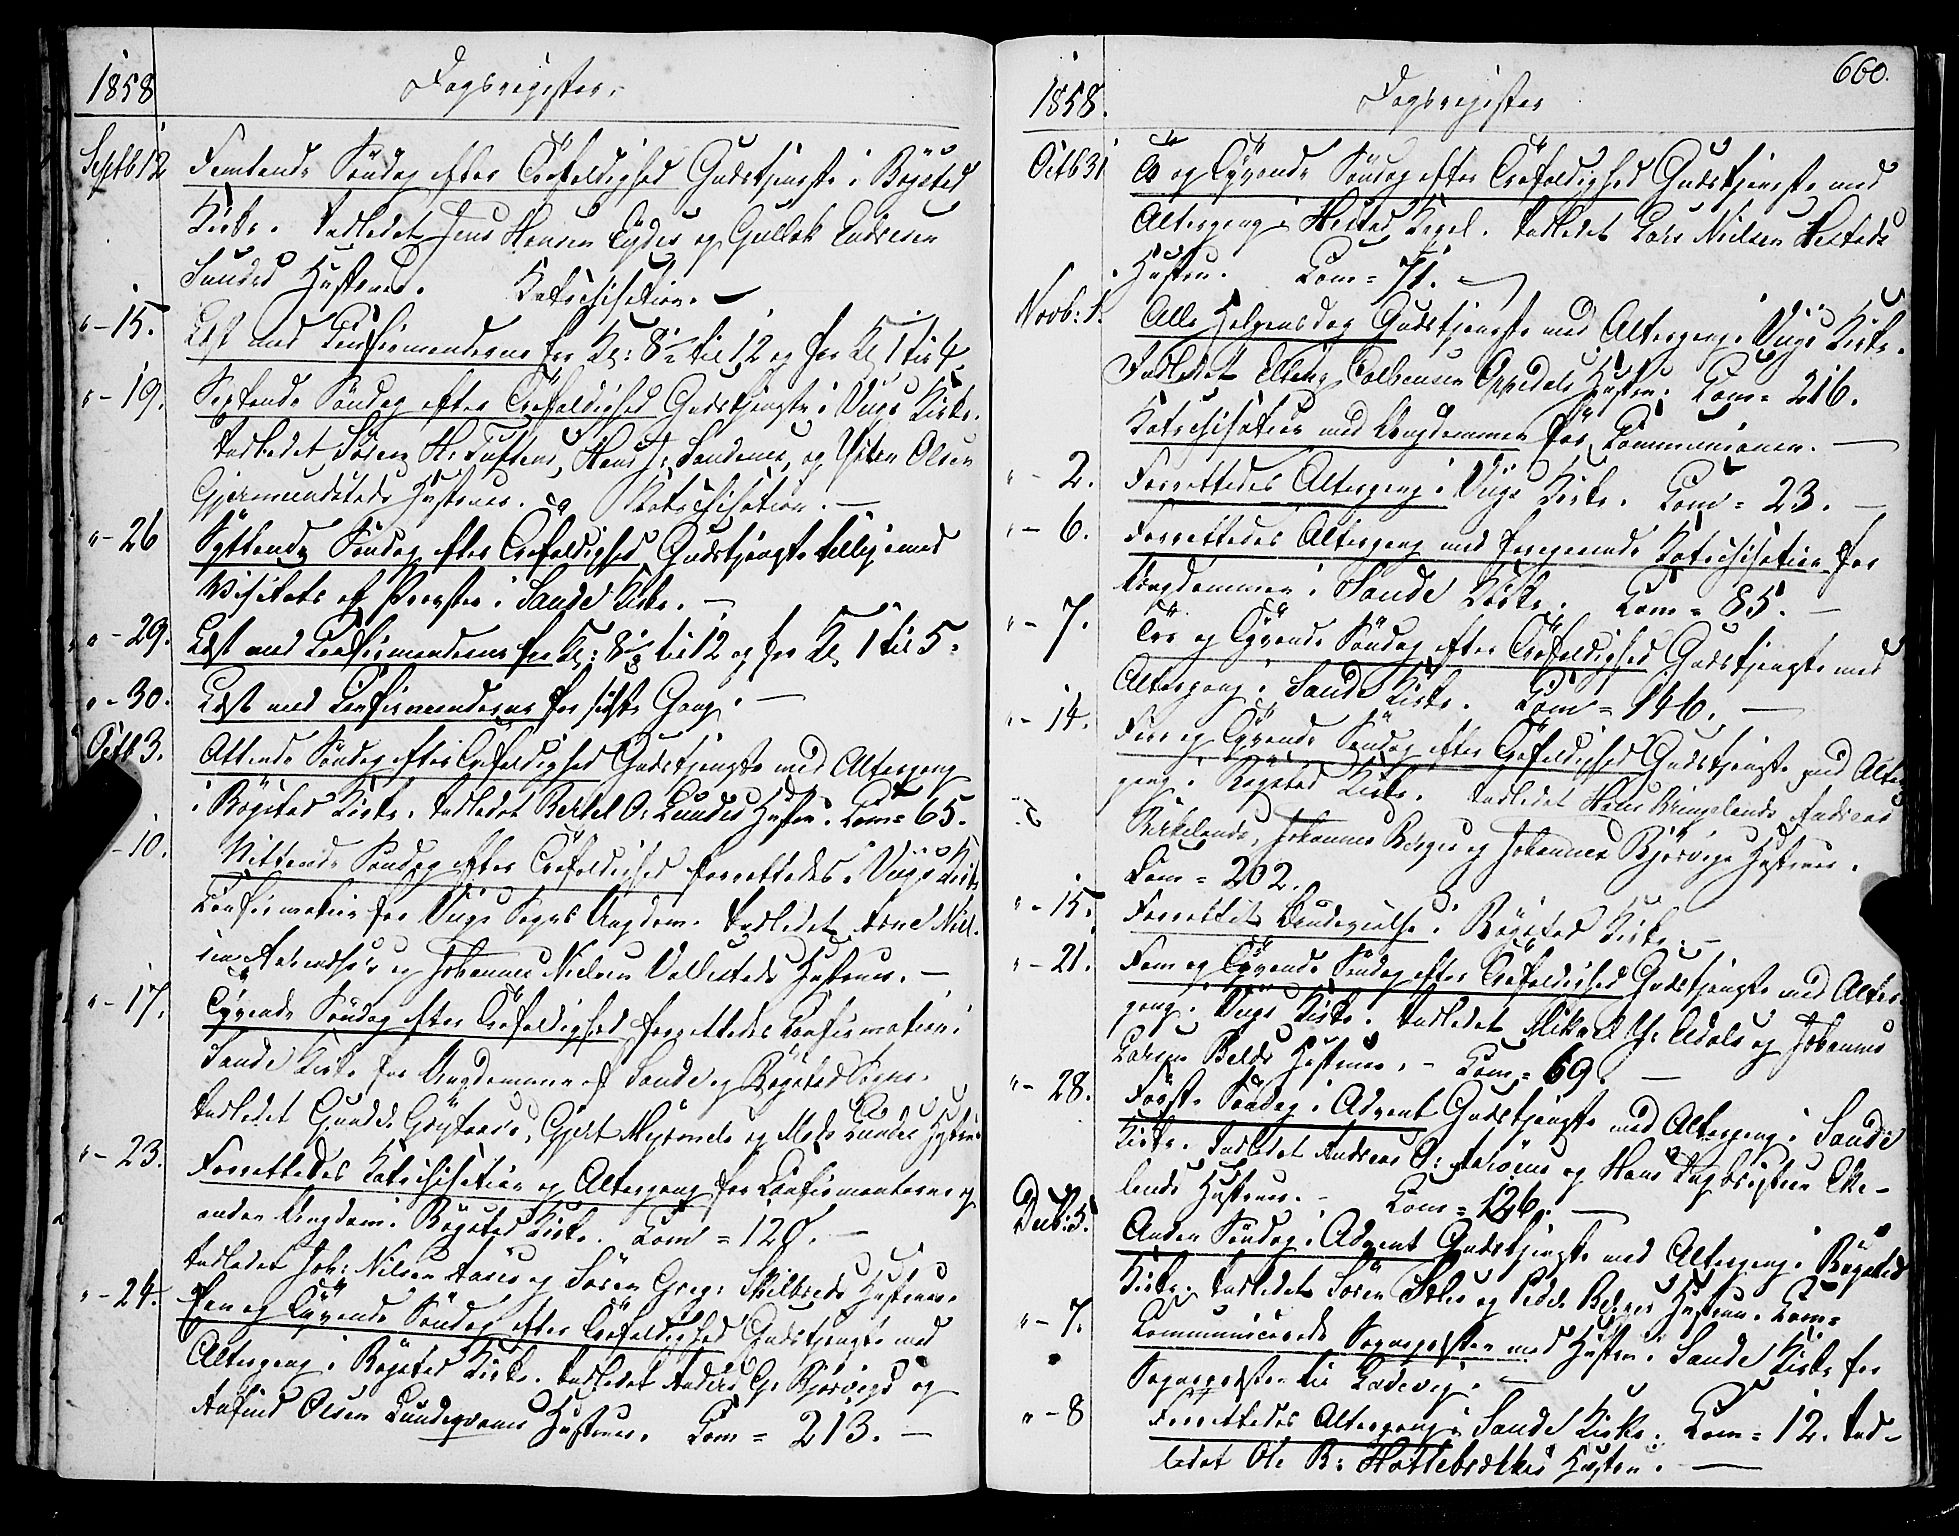 1858
Dagsregister.
Septb 12
Femtende Söndag efter Trefoldighed Gudstjeneste i Bygstad
Kirke. Indledet Jens Hansen Eydes og Gullak Endresen
Sandes Hustruer. Katechisation. —
" – 15.
Læst med Confirmanderne fra Kl: 8½ til 12 og fra Kl 1 til 4
" – 19.
Sextende Söndag efter Trefoldighed Gudstjeneste i Viigs Kirke.
Indledet Sörens H. Tuftens, Hans J. Sandenes, og Olsen
Gjermundstads Hustruer. Katechisation. —
" – 26
Syttende Söndag efter Trefoldighed Gudstjeneste tilligemed
Visitats af Provsten i Sande Kirke. —
" – 29.
Læst med Confirmanderne fra Kl: 8½ til 12 og fra Kl 1 til 5.
" – 30.
Læst med Confirmanderne for sidste Gang. —
Octb 3.
Attende Söndag efter Trefoldighed Gudstjeneste med Altergang
i Bygstad Kirke. Indledet Bertel O: Lundes Hustru. Com = 65.
– 10.
Nittende Söndag efter Trefoldighed forrettedes i Viigs Kirke
Confirmation for Viigs Sogns Ungdom. Indledet Arne Niel-
sen og Johannes Nielsen Vallestads Hustruer. —
" – 17.
Tyvende Söndag efter Trefoldighed forrettedes Confirmation i
Sande Kirke for Ungdommen af Sande og Bygstad Sogne.
Indledet Gjert og Mads Lundes Hustruer
" – 23.
Forrettedes Katechisation og Altergang for Confirmanterne og
anden Ungdom i Bygstad Kirke. Com = 120. —
Indledet Joh: Nilsen Aases og Sören Greg: Skilbreds Hustruer.
" – 24.
Een og Tyvende Söndag efter Trefoldighed Gudstjeneste med
Altergang i Bygstad Kirke. Indledet Anders G. Bjorvigs og
Anfind Olsen Hustruer. Com = 213. —
660.
1858.
Dagsregister
Octb 31
To og Tyvende Söndag efter Trefoldighed Gudstjeneste med
Altergang i Hestad Kapel. Indledet Lars Nielsen Hestads
Hustru. Com = 71. —
Novb: 1.
Alle Helgensdag Gudstjeneste med Altergang i Viigs Kirke.
Indledet Elling Hustru. Com = 216.
Katechisation med Ungdommen för Communionen. —
" – 2.
Forrettedes Altergang i Viigs Kirke. Com = 23. —
" – 6.
Forrettedes Altergang med foregaaende Katechisation for
Ungdommen i Sande Kirke. Com = 85. —
" – 7.
Tre og Tyvende Söndag efter Trefoldighed Gudstjeneste med
Altergang i Sande Kirke. Com = 146. —
" – 14.
Fire og Tyvende Söndag efter Trefoldighed Gudstjeneste med Alter-
gang i Bygstad Kirke. Indledet Hans Ringelands, Andreas
Birkelands, Johannes Berges og Johannes Bjorvigs Hustruer.
Com = 202.
" – 15.
Forrettet Brudevielse i Bygstad Kirke. —
" – 21.
Fem og Tyvende Söndag efter Trefoldighed Gudstjeneste med Alter-
gang i Viigs Kirke. Indledet Mikael og Johannes
Larsen Hustruer. – Com = 69. —
" – 28.
Förste Söndag i Advent Gudstjeneste med Altergang i Sande
Kirke. Indledet Andreas O: og Hans Eke-
lands Hustruer. – Com = 126. —
Decb: 5.
Anden Söndag i Advent Gudstjeneste med Altergang i Bygstad
Kirke. Indledet Sören og Peder Berges Hustruer. Com =
" – 7.
Communicerede Sognepræsten med Hustru i Sande Kirke for
Sognepræsten til
" – 8
Forrettedes Altergang i Sande Kirke. Com = 12. Ind-
ledet Ole B: Hustru. —